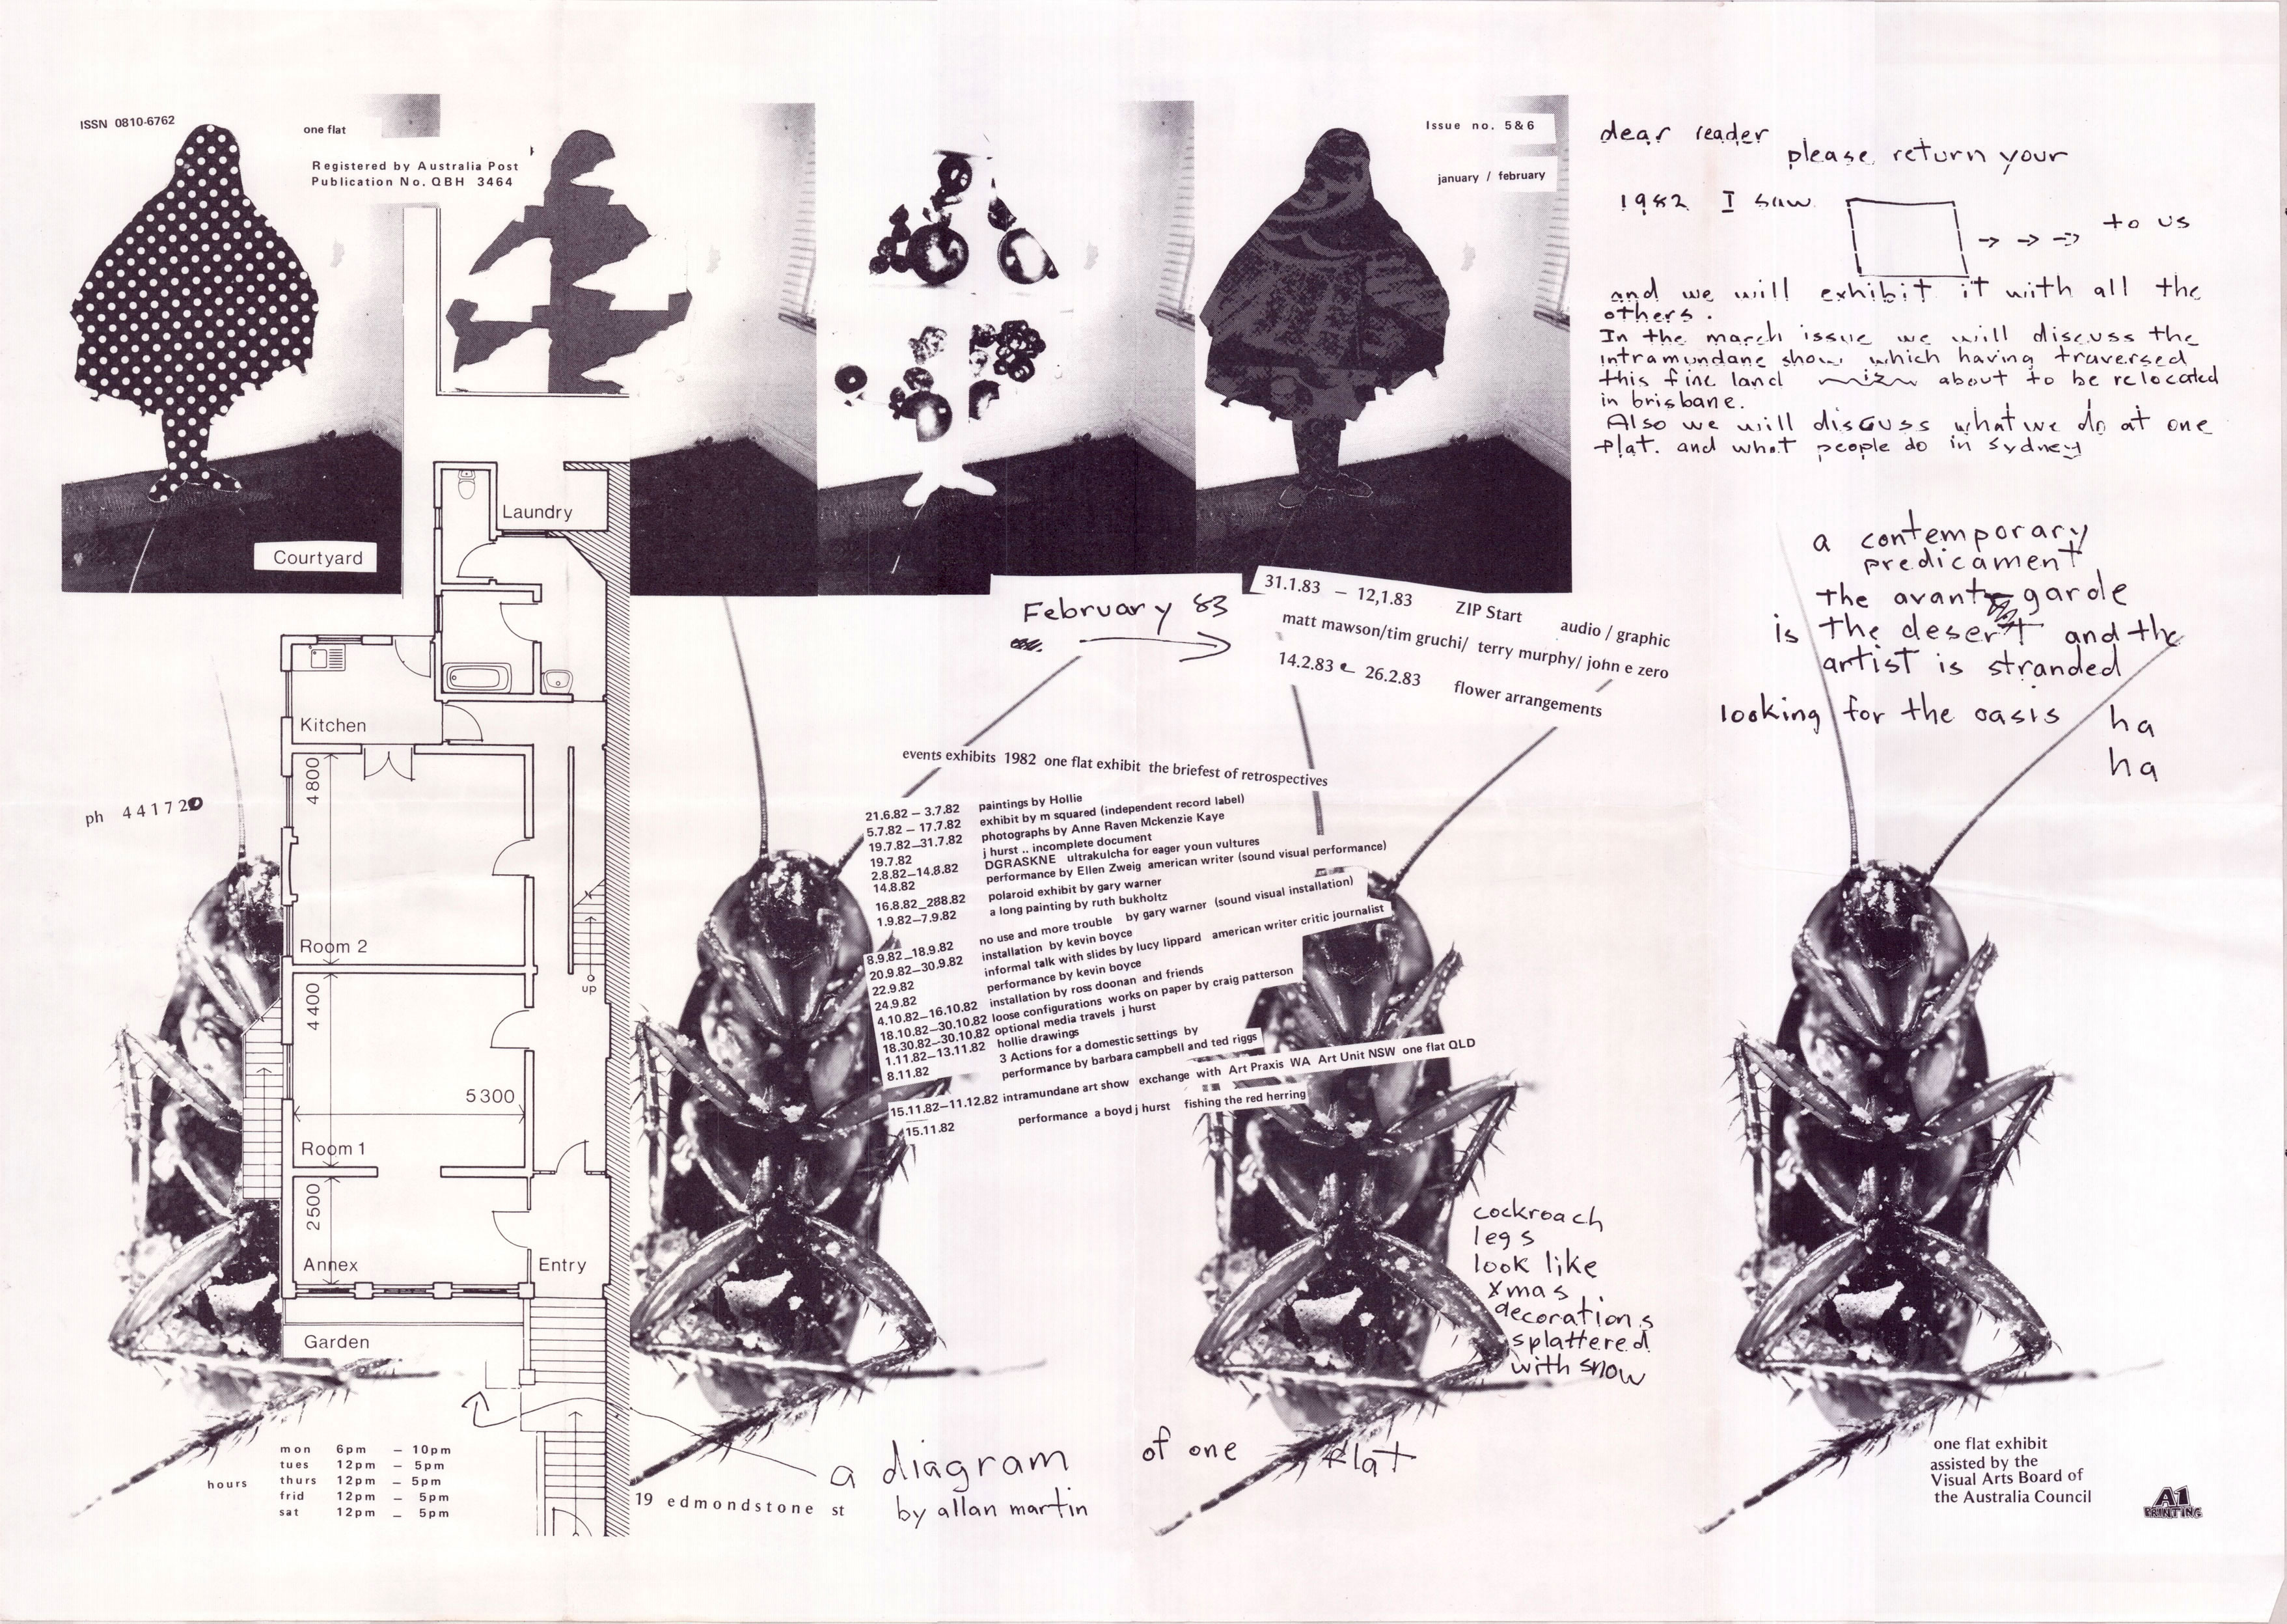 ISSN 0810-6762
one flat
Registered by Australia Post
Publication No. QBH 3464
Issue no. 5&6
january / february
dear reader
please return your
1982 I saw
to us
and we will exhibit it with all the
others.
In the march issue we will discuss the
intramundane show which having traversed
this fine land about to be relocated
in brisbane.
Also we will discuss what we do at one
flat. and what people do in sydney
a contemporary
predicament
the avant garde
is the desert and the
artist is stranded
looking for the oasis
ha
ha
Courtyard
Laundry
Kitchen
4800
Room 2
4400
up
5300
Room 1
2500
Annex
Entry
Garden
ph 441720
February 83
31.1.83 – 12,1.83 ZIP Start audio / graphic
matt mawson/tim gruchi/ terry murphy/ john e zero
14.2.83 – 26.2.83 flower arrangements
events exhibits 1982 one flat exhibit the briefest of retrospectives
21.6.82 – 3.7.82 paintings by Hollie
5.7.82 – 17.7.82 exhibit by m squared (independent record label)
19.7.82–31.7.82 photographs by Anne Raven Mckenzie Kaye
19.7.82 j hurst .. incomplete document
2.8.82–14.8.82 DGRASKNE ultrakulcha for eager youn vultures
14.8.82 performance by Ellen Zweig american writer (sound visual performance)
16.8.82_288.82 polaroid exhibit by gary warner
1.9.82–7.9.82 a long painting by ruth bukholtz
8.9.82_18.9.82 no use and more trouble by gary warner (sound visual installation)
20.9.82–30.9.82 installation by kevin boyce
22.9.82 informal talk with slides by lucy lippard american writer critic journalist
24.9.82 performance by kevin boyce
4.10.82–16.10.82 installation by ross doonan and friends
18.10.82–30.10.82 loose configurations works on paper by craig patterson
18.30.82–30.10.82 optional media travels j hurst
1.11.82–13.11.82 hollie drawings
8.11.82 3 Actions for a domestic settings by
performance by barbara campbell and ted riggs
15.11.82–11.12.82 intramundane art show exchange with Art Praxis WA Art Unit NSW one flat QLD
15.11.82 performance a boyd j hurst fishing the red herring
cockroach
legs
look like
xmas
decorations
splattered
with snow
hours
mon 6pm – 10pm
tues 12pm – 5pm
thurs 12pm – 5pm
frid 12pm – 5pm
sat 12pm – 5pm
a diagram of one flat
19 edmondstone st
by allan martin
one flat exhibit
assisted by the
Visual Arts Board of
the Australia Council
A1
PRINTING